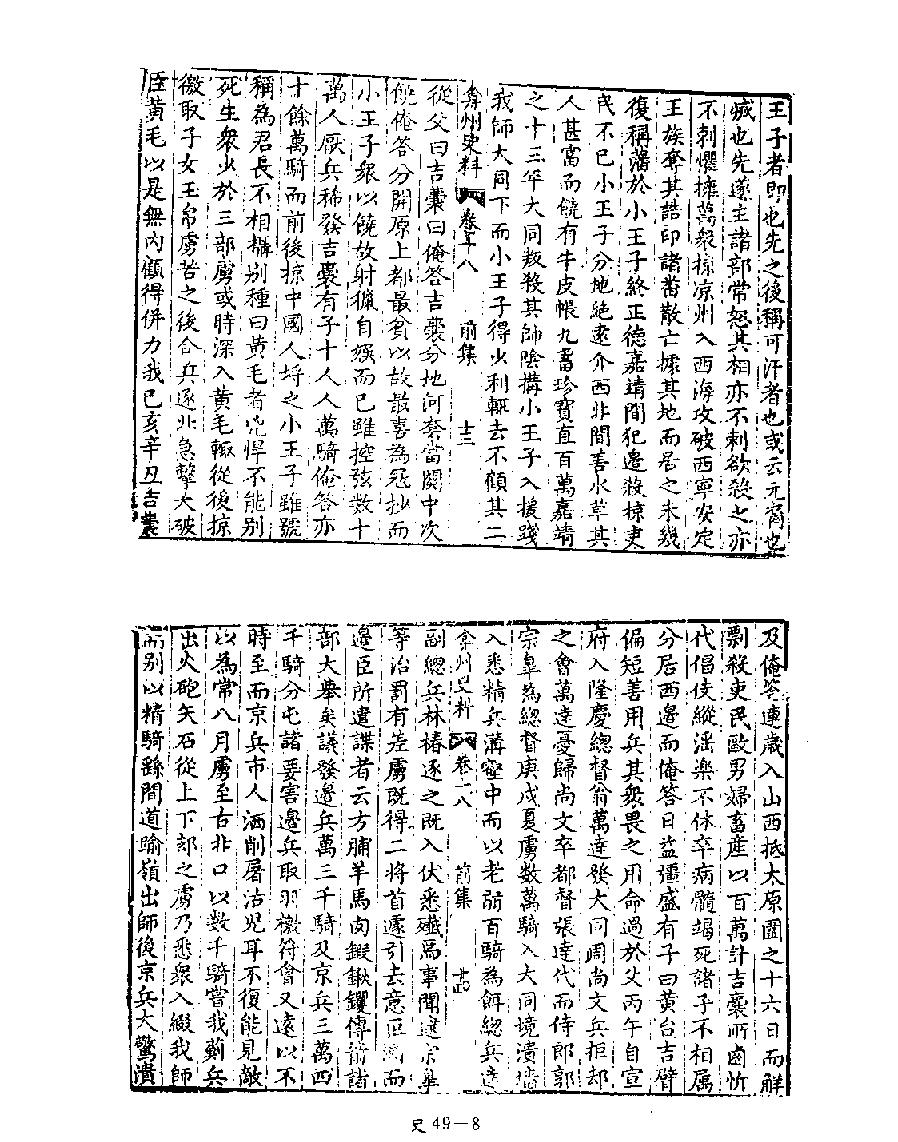 王子者即也先之後稱可汗者也或云元裔也
也先遂主諸部常怒其相亦不剌欲殺之亦
不剌懼擁萬衆掠凉州入西海攻破西寧安定
王族奪其誥印諸番散亡據其地而居之未幾
復稱藩於小王子終正德嘉靖間犯邊殺掠吏
民不已小王子分地絶遠介西北間善水草其
人甚富而饒有牛皮帳九畜珍寶直百萬嘉靖
之十三年大同叛殺其帥陰搆小王子入援踐
我師大同下而小王子得少利輒去不顧其二
弇州史料 卷十八 前集 十三
從父曰吉囊曰俺答吉囊分地河套當關中次
俺答分開原上都最貧以故最喜為冦抄而
小王子衆以饒故射獵自娱而已雖控弦數十
萬人厭兵稀發吉囊有子十人人萬騎俺答亦
十餘萬騎而前後掠中國人埒之小王子雖號
稱為君長不相攝别種曰黄毛者兇悍不能别
死生衆少於三部虜或時深入黄毛輒從後掠
徼取子女玉帛虜苦之後合兵逐北急擊大破
臣黄毛以是無内顧得併力我己亥辛丑吉囊
及俺答連歲入山西抵太原圍之十六日而解
剽殺吏民敺男婦畜産以百萬計吉囊所鹵忻
代倡伎縱滛樂不休卒病髓竭死諸子不相属
分居西邊而俺答日益彊盛有子曰黄台吉臂
偏短善用兵其衆畏之用命過於父丙午自宣
府入隆慶總督翁萬達發大同周尚文兵拒却
之會萬達憂歸尚文卒都督張達代而侍郎郭
宗臯為總督庚戌夏虜數萬騎入大同境潰墻
入悉精兵溝壑中而以老弱百騎為餌總兵達
弇州史料 卷十八 前集 十四
副總兵林椿逐之既入伏悉殲焉事聞逮宗臯
等治罰有差虜既得二將首遽引去意叵測而
邊臣所遣諜者云方脯羊馬肉鍛鍬钁傳箭諸
部大舉矣議發邊兵萬二千騎及京兵三萬西
千騎分屯諸要害邊兵取羽檄符會又遠以不
時至而京兵市人洒削屠沽兒耳不復能見敵
以為常八月虜至古北口以數千騎嘗我薊兵
出火砲矢石從上下郄之虜乃悉衆入綴我師
而别以精騎繇間道踰嶺出師後京兵大驚潰
尺 49—8